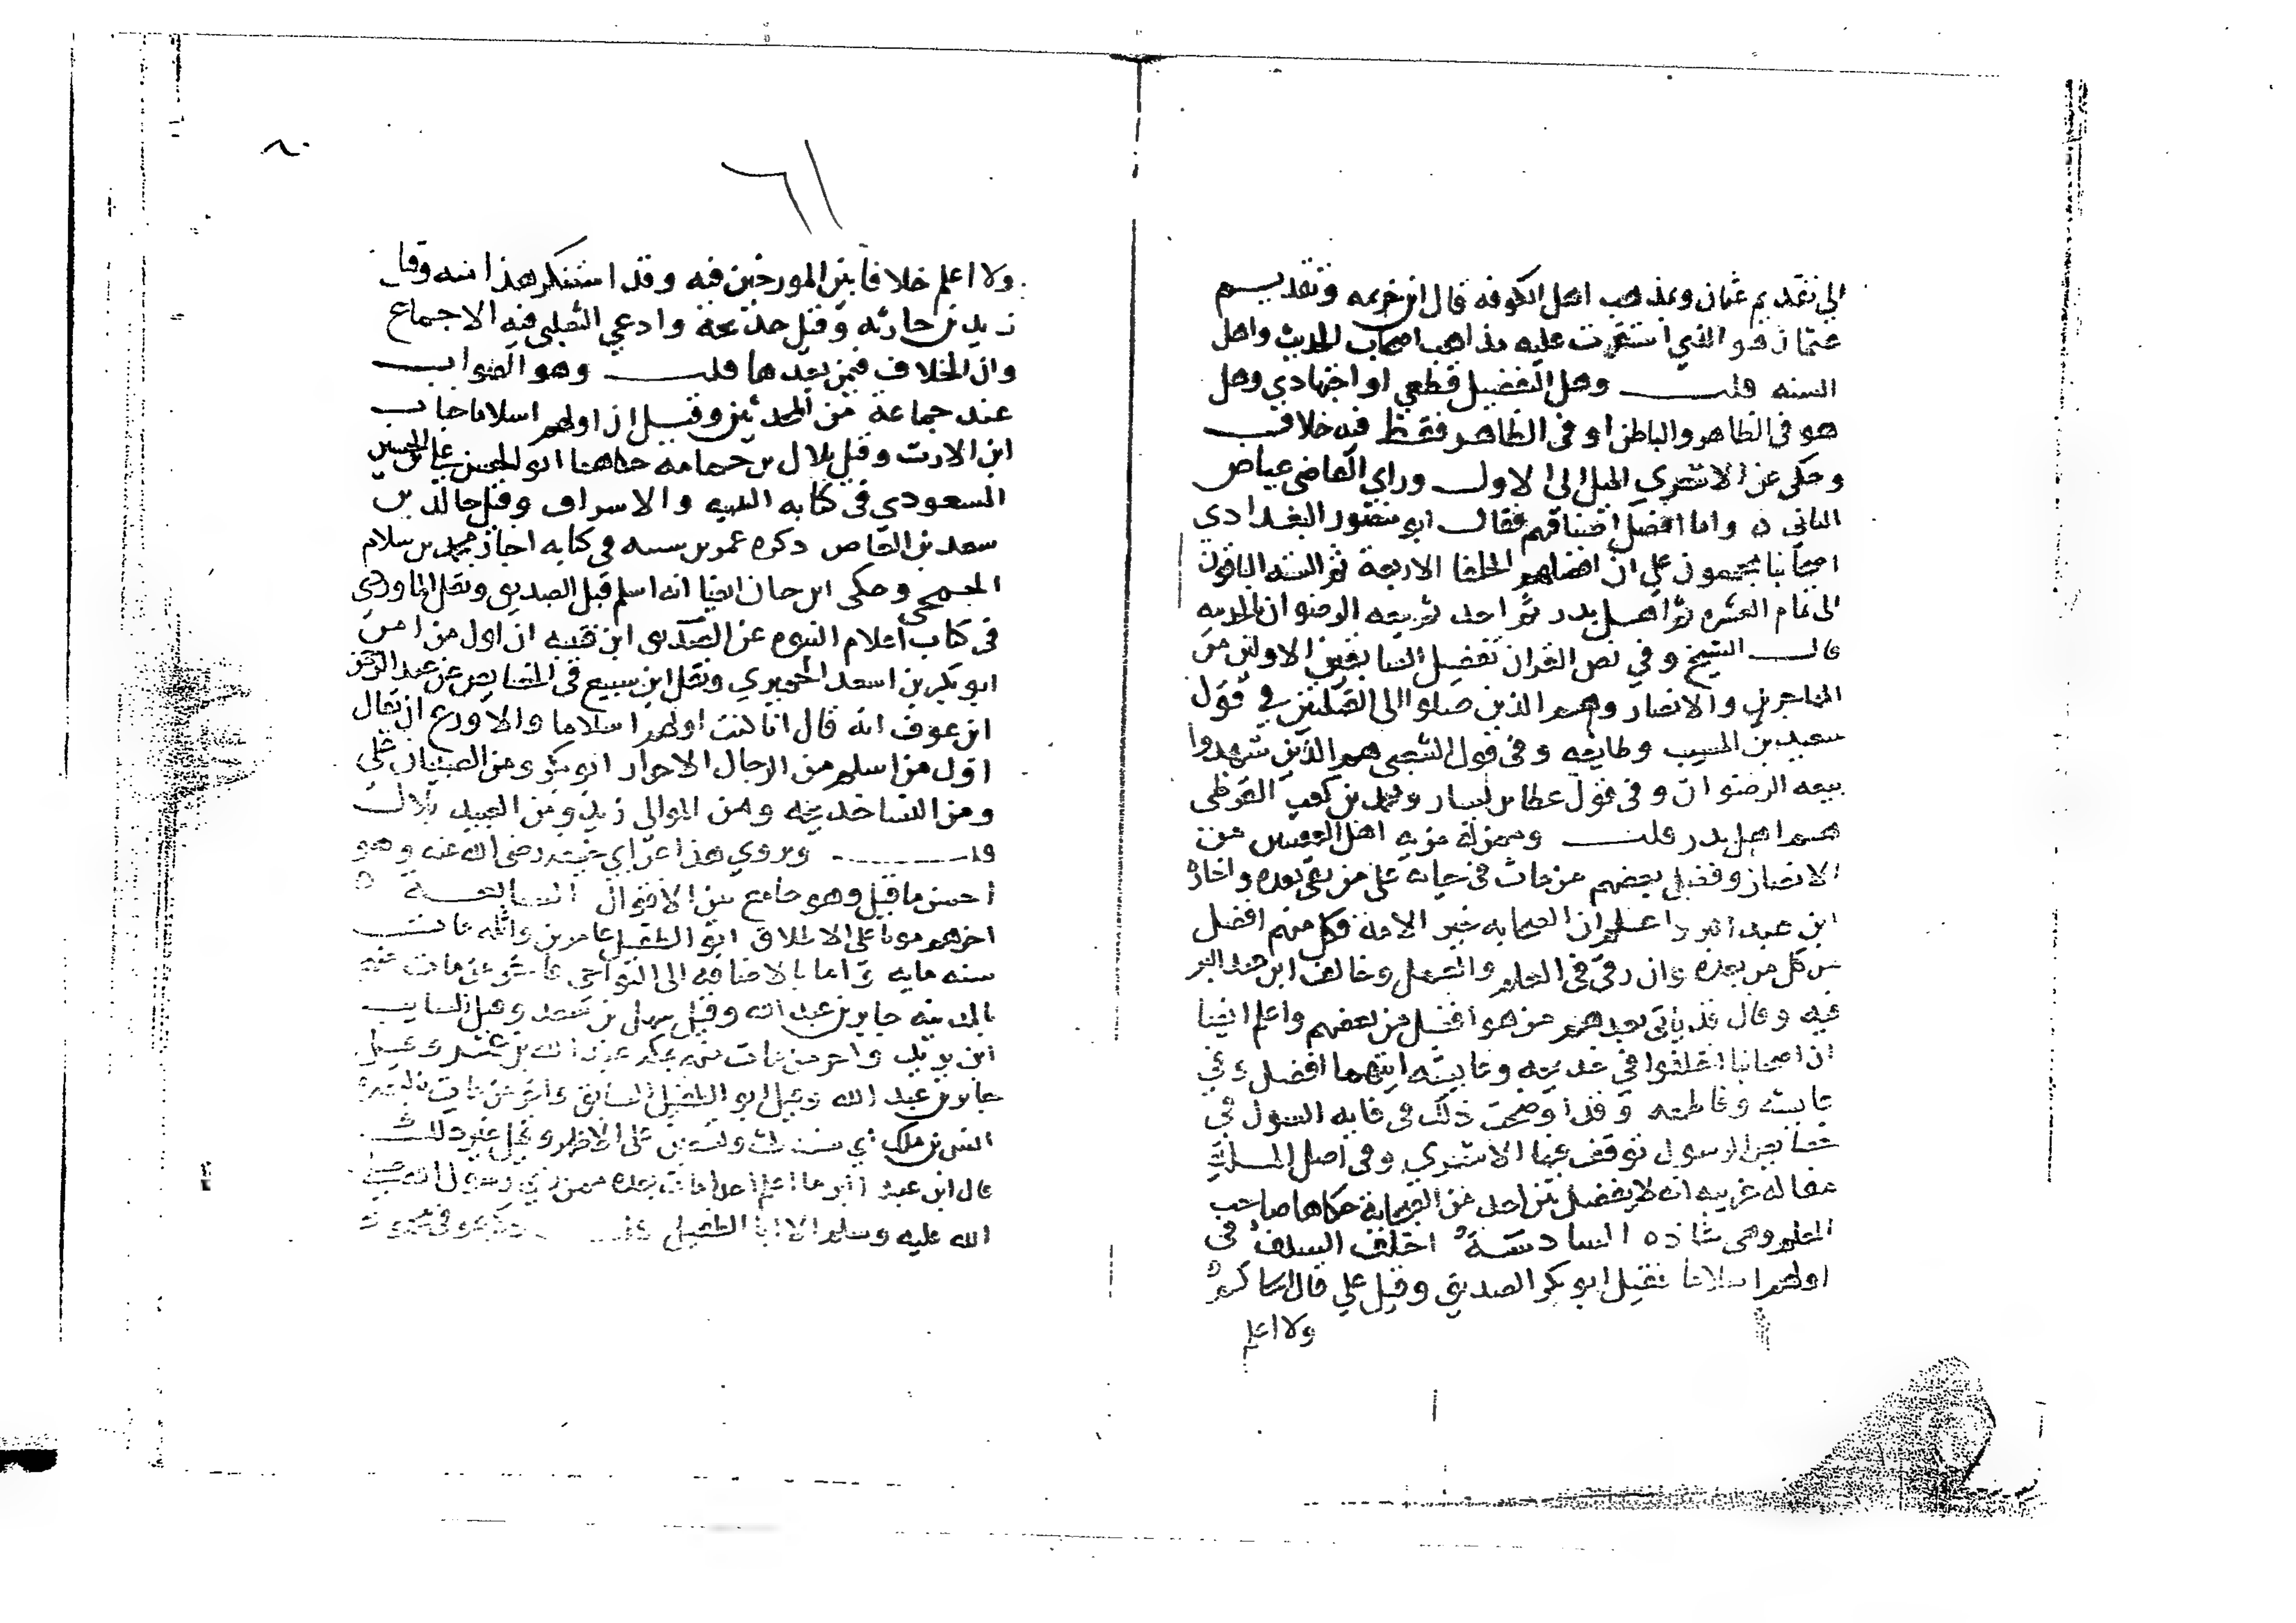 الي تقديم عثمان وبمذهب اهل الكوفه قال ابن خزيمه وتقديم
عثمان هو الذي استقرت عليه مذاهب اصحاب الحديث واهل
السنه قلت وهل التفضيل قطعي او اجتهادي وهل
هو في الظاهر والباطن او في الظاهر فقط فيه خلاف
وحكى عن الاشعري الميل الى الاول وراي القاضي عياض
الثاني ه واما افضل اصنافهم فقال ابو منصور البغدادي
اصحابنا مجمعون علي ان افضلهم الخلفا الاربعة ثم الستة الباقون
الى تمام العشره ثم اهل بدر ثم احد ثم بيعه الرضوان بالحديبيه
قال الشيخ وفي نص القران تفضيل السابقين الاولين من
المهاجرين والانصار وهم الذين صلوا الى القبلتين في قول
سعيد بن المسيب وطايفه وفي قول الشعبي هم الذين شهدوا
بيعه الرضوان وفي قول عطا بن يسار ومحمد بن كعب القرظي
هم اهل بدر قلت وممن له مزيه اهل العقبتين من
الانصار وفضل بعضهم من مات في حياته على من بقي بعده واختاره
ابن عبد البر واعلم ان الصحابه خير الامة فكل منهم افضل
من كل من بعده وان رقي في العلم والعمل وخالف ابن عبد البر
فيه وقال قد ياتي بعدهم من هو افضل من بعضهم واعلم ايضا
ان اصحابنا اختلفوا في خديجه وعايشه ايتهما افضل وفي
عايشه وفاطمه وقد اوضحت ذلك في غايه السول في
خصايص الرسول توقف فيها الاشعري وفي اصل المسلة
مقاله غريبه انه لا يفضل بين احد من الصحابة حكاها صاحب
المعلم وهي شاذه السادسة اختلف السلف في
اولهم اسلاما فقيل ابو بكر الصديق وقيل علي قال الحاكم
ولا اعلم
٦١
ولا اعلم خلافا بين المورخين فيه وقد استنكر هذا منه وقيل
زيد بن حارثه وقيل خديجة وادعي الثعلبي فيه الاجماع
وان الخلاف فيمن بعدها قلت وهو الصواب
عند جماعة من المحدثين وقيل ان اولهم اسلاما خباب
ابن الارت وقيل بلال بن حمامه حكاهما ابو الحسن علي بن الحسين
المسعودي في كتابه التنبيه والاسراف وقيل خالد بن
سعيد بن العاص ذكره عمر بن شبه في كتابه اخبار محمد بن سلام
الجمحي وحكى ابن حبان ايضا انه اسلم قبل الصديق ونقل الماوردي
في كتاب اعلام النبوه عن ابن قتيبه ان اول من امن
ابو بكر بن اسعد الحميري ونقل ابن سبيع في الخصايص عن عبد الرحمن
ابن عوف انه قال انا كنت اولهم اسلاما والاورع ان يقال
اول من اسلم من الرجال الاحرار ابو بكر ومن الصبيان علي
ومن النسا خديجه ومن الموالي زيد ومن العبيد بلال
ويروي هذا عن ابي حنيفه رضي الله عنه وهو
احسن ما قيل وهو جامع بين الاقوال السابعة ه
اخرهم موتا على الاطلاق ابو الطفيل عامر بن واثله مات
سنه مايه واما بالاضافه الى النواحي فاخر من مات منهم
بالمدينه جابر بن عبد الله وقيل سهل بن سعد وقيل السايب
ابن يزيد واخر من مات منهم بمكه عبد الله بن عمر وقيل
جابر بن عبد الله وقيل ابو الطفيل السابق واخر من مات بالبصره
انس بن ملك اي سنه ثلث وتسعين على الاظهر وقيل غير ذلك
قال ابن عبد البر ما اعلم احدا مات بعده ممن راي رسول الله صلى
الله عليه وسلم الا ابا الطفيل